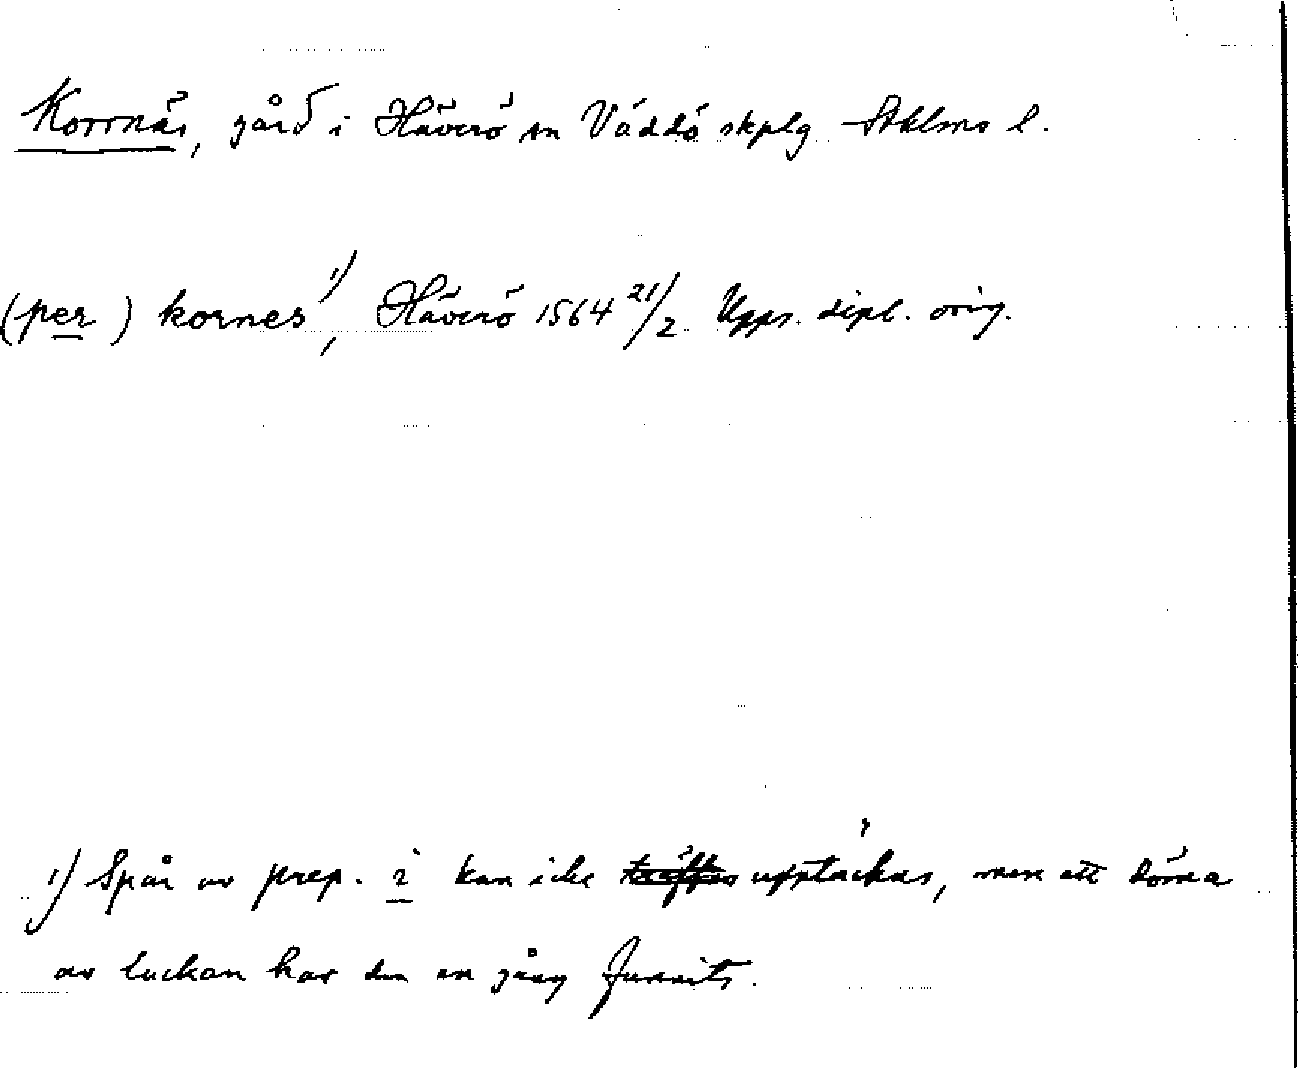 Korrnäs, gård i Häverö sn Väddö skplg Sthlms l.
(per) kornes 1), Häverö 1564 21/2 Upps. dipl. orig.
1) Spår av prep. i kan icke upptäckas, men att döma
av luckan har den en gång funnits.